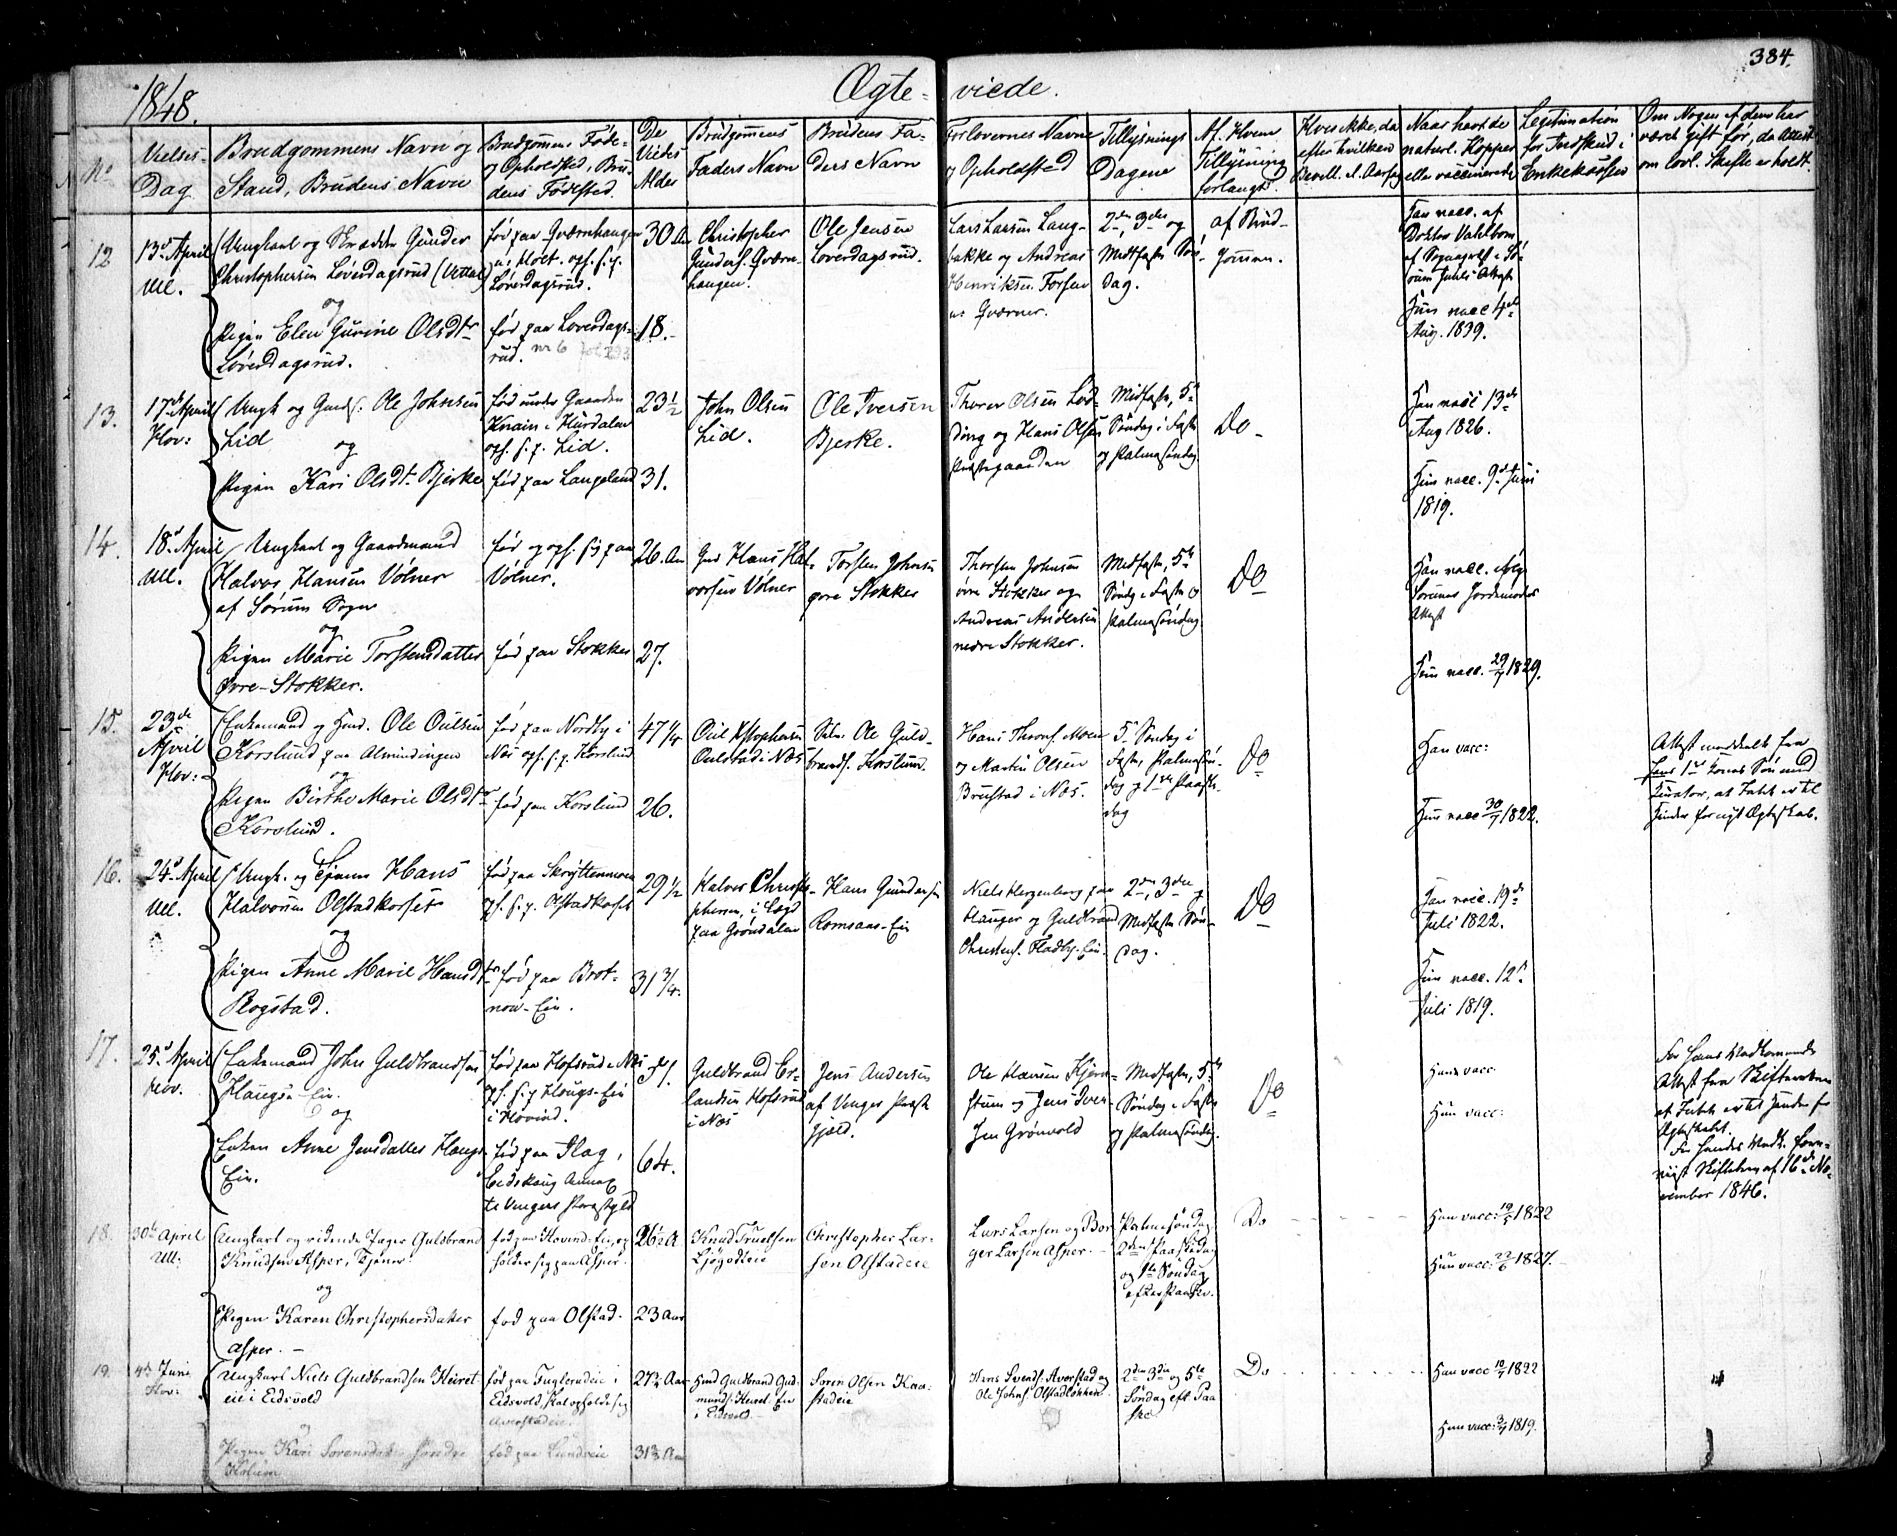 384.
1848.
Ægte-viede.
No
Vielses-
Dag
Brudgommens Navn og
Stand, Brudens Navn
Brudgommens Føde-
og Opholdsted, Bru-
dens Fødested.
De
Viedes
Alder
Brudgommens
Faders Navn
Brudens Fa-
ders Navn
Forlovernes Navne
og Opholdsted
Tillysnings
Dagene
Af Hvem
Tillysning
forlangt.
Hvis ikke, da
efter hvilken
Bevill. el. Aarsag
Naar havt de
naturl. Kopper
eller vaccinerede
Legitimation
for Indskud i
Enkekassen
Om Nogen af dem har
været gift før, da Attest
om lovl. Skifte er holdt.
12
13d April
Ull.
Ungkarl og Skrædder Gunder
Christophersen Løverdagsrud
og
Pigen Elen Gurine Olsdtr
Løverdagsrud.
født paa Qværnhaugen
Løverdagsrud.
født paa Loverdags-
rud.
30 Aar
18.
Christopher
Gunders. Qværn-
haugen.
Ole Jensen
Loverdagsrud.
Lars Larsen Laug-
bakke og Andreas
Henriksen Fossen
Qværner.
2den, 3die og
Midtfaste Søn-
dag.
af Brud-
gommen.
Han vacc. af
Doktor Vahlbom
Hun vacc. 4de
Aug. 1839.
13.
17d April
Hov:
Ungk. og Gaards. Ole Johnsen
Lid
og
Pigen Kari Olsdtr Bjerke
født under Gaarden
Knain i Hurdalen
oph. s. p. Lid.
født paa Langeland
23 1/2
31.
John Olsen
Lid.
Ole Iversen
Bjerke.
Thorer Olsen Lød-
ding og Hans Olsen
Præstegaarden
Midtfaste, 5te
Søndag i Faste
og Palmesøndag.
Do
Han vacc. 13de
Aug 1826.
Hun vacc. 9de Juni
1819.
14.
18d April
Ull.
Ungkarl og Gaardmand
Halvor Hansen Vølner
af Sørum Sogn
og
Pigen Marie Torstensdatter
Øvre-Stokker.
født og oph. sig paa
Vølner.
født paa Stokker
26. Aar
27.
Gmd Hans Hal-
vorsen Vølner
Torsten Johnsen
øvre Stokker
Thorsten Johnsen
øvre Stokker og
Andreas Andersen
nedre Stokker.
Midtfaste, 5te
Søndag i Faste og
Palmesøndag
Do
Han vacc. ifølge
Sørums Jordemoders
Attest
Hun vacc. 29/7 1829.
15.
23de
April
Hov:
Enkemand og Husm. Ole Oulsen
Korslund paa Almindingen
og
Pigen Birthe Marie Olsdtr
Korslund.
født paa Nordby i
Næs oph. s. p. Korslund
født paa Korslund
47 1/4
26.
Oul Kristophersen
Oulstad i Næs
Ole Guld-
brands. Korslund.
Hans Thronds. Moen
og Martin Olsen
Brustad i Næs.
5te Søndag i
Faste, Palmesøn-
dag og 1ste Paaske-
dag
Do
Han vacc:
Hun vacc 30/7 1822.
Attest meddelt fra
hans 1ste Kones Søn med
Curator, at Intet er til
Hinder for nyt Ægteskab.
16.
24d April
Ull.
Ungk. og Tjener Hans
Halvorsen Olstadkorset
og
Pigen Anne Marie Hansdtr
Rogstad.
født paa Skryttenmoen
oph. s. p. Olstadkorset
født paa Brot-
now-Eie.
29 1/2
31 3/4.
Halvor Christo-
phersen, i Lægd
paa Grøndalen
Hans Gundersen
Romsaas-Eie
Niels Hergenborg paa
Hauger og Guldbrand
Christens. Fladby-Eie.
2den, 3die og
Midtfaste Søn-
dag.
Do
Han vacc. 19de
Juli 1822.
Hun vacc. 12te
Juli 1819.
17.
25d April
Hov.
Enkemand John Guldbrandsen,
Haugs-Eie.
og
Enken Anne Jensdatter Haugs-
Eie.
født paa Hofsrud i Næs
oph. s. p. Haugs-Eie
i Hovind.
født paa Flag,
Eidskoug Annex
til Vingers Præstegjeld
64.
Guldbrand Er-
landsen Hofsrud
i Næs
Jens Andersen
af Vinger Præste-
gjeld.
Ole Hansen Kjern-
stuen og Jens Iver-
sen Grønvold
Midtfaste, 5te
Søndag i Faste
og Palmesøndag.
Do
Han vacc.
Hun vacc:
For hans Vedkommende
Attest fra Skifteretten
at Intet er til Hinder for
Ægteskabet.
For hendes Vedk. frem-
viist Skiftebrev af 16de No-
vember 1846.
18.
30te April
Ull:
Ungkarl og ridende Jæger Gulbrand
Knudsen Asper, Tjener
og
Pigen Karen Christophersdatter
Asper. -
født paa Hovind-Eie, op-
holder sig paa Asper.
født paa Olstad.
26 1/2 A
23 Aar
Knud Truelsen
Ljøgodteie
Christopher Lar-
sen Olstadeie
Lars Larsen og Bor-
ger Larsen Asper. -
Palmesøndag
2den Paaskedag
og 1ste Søndag
efter Paaske.
Do
Han vacc: 19/5 1822
Hun vacc: 22/6 1827.
19.
4de Juni
Hov:
Ungkarl Niels Guldbrandsen Heiret-
eie i Eidsvold
og
Pigen Kari Sorensdatter
født paa Fuglerudeie i
Eidsvold, skal opholde sig
Averstadeie.
født paa Lundeeie
27 1/2 Aar
31 3/4 Aar
Husmd Guldbrand Gud-
munds. Heiret-Eie
i Eidsvold
Soren Olsen Kaa-
stadeie
Hans Svends. Averstad og
Ole Johns. Olstadløkken.
2den 3die og 5te
Søndag eft. Paa-
ske
Do
Han vacc 10/7 1822
Hun vacc: 3/7 1819.